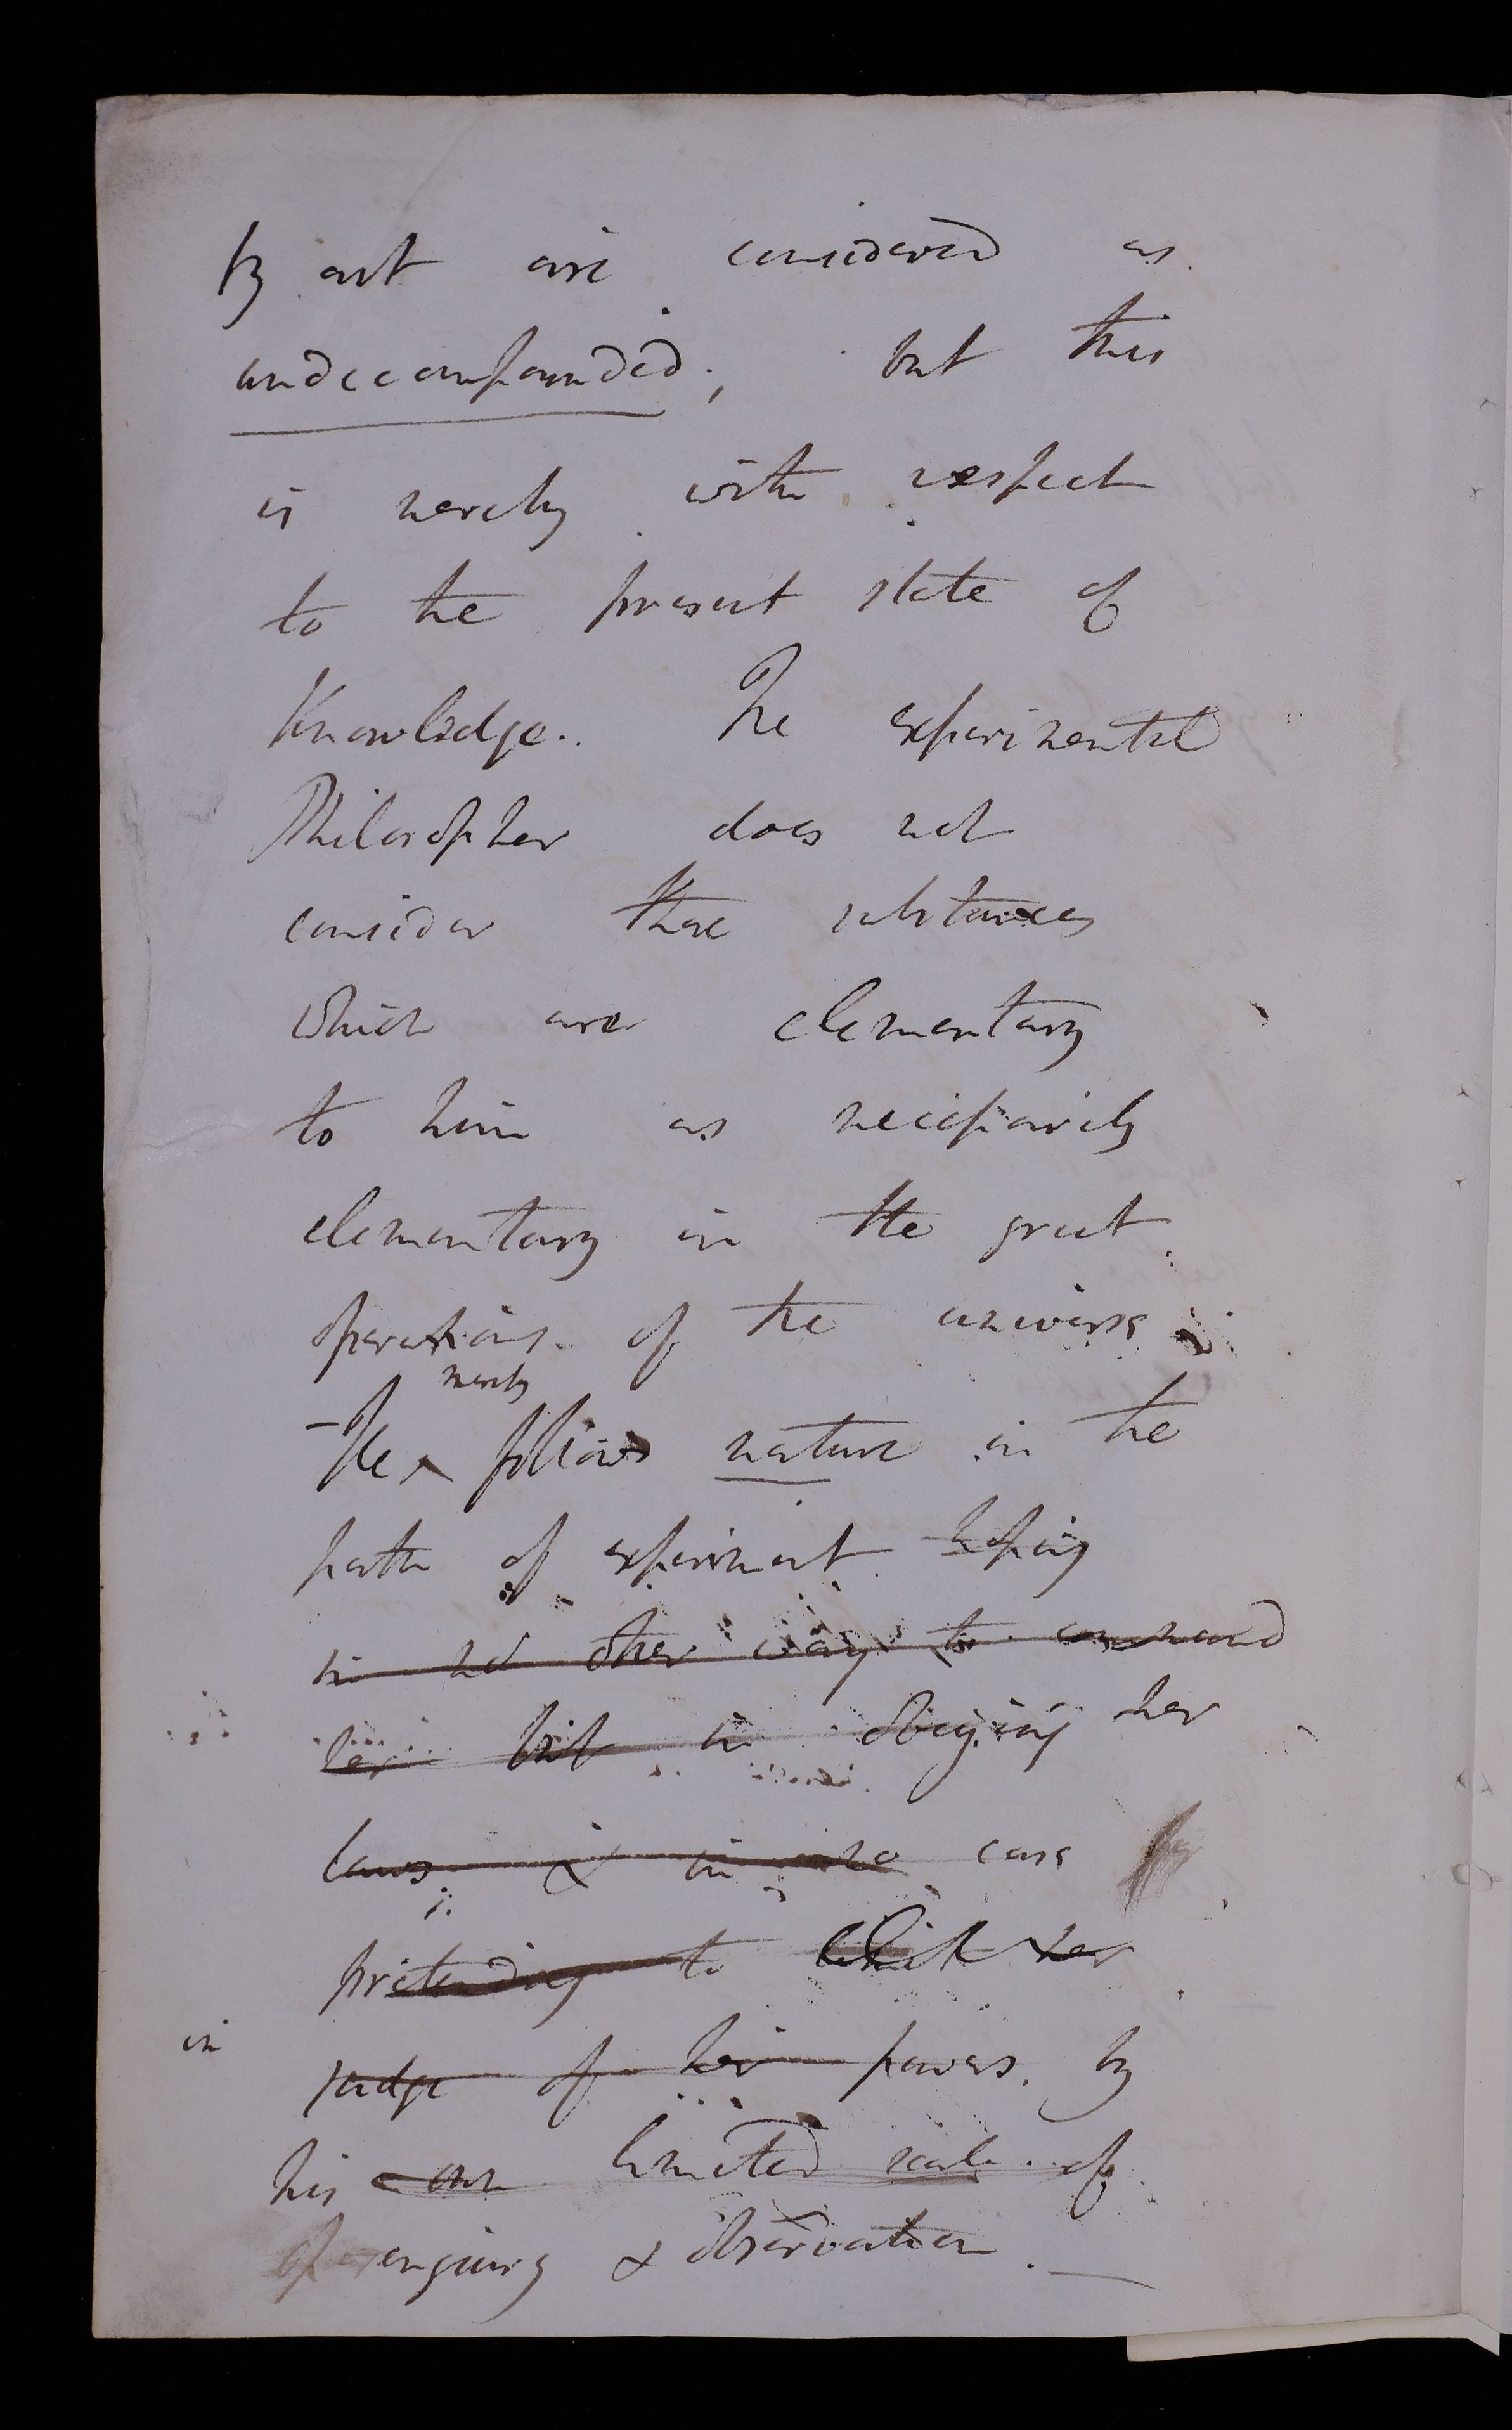 by art are considered as
undecompounded; but this
is merely with respect
to the present state of
Knowledge. The experimental
Philosopher does not
consider those substances
which are elementary
to him as necessarily
elementary in the great
operations of the universe.
merely
– He ^ follows nature in the
path of experiment hoping
in no other way to command
her but in obeying her
laws & in no case
pretending to limit her
in
judge of her powers by
his own limited scale of
of enquiry & observation. —